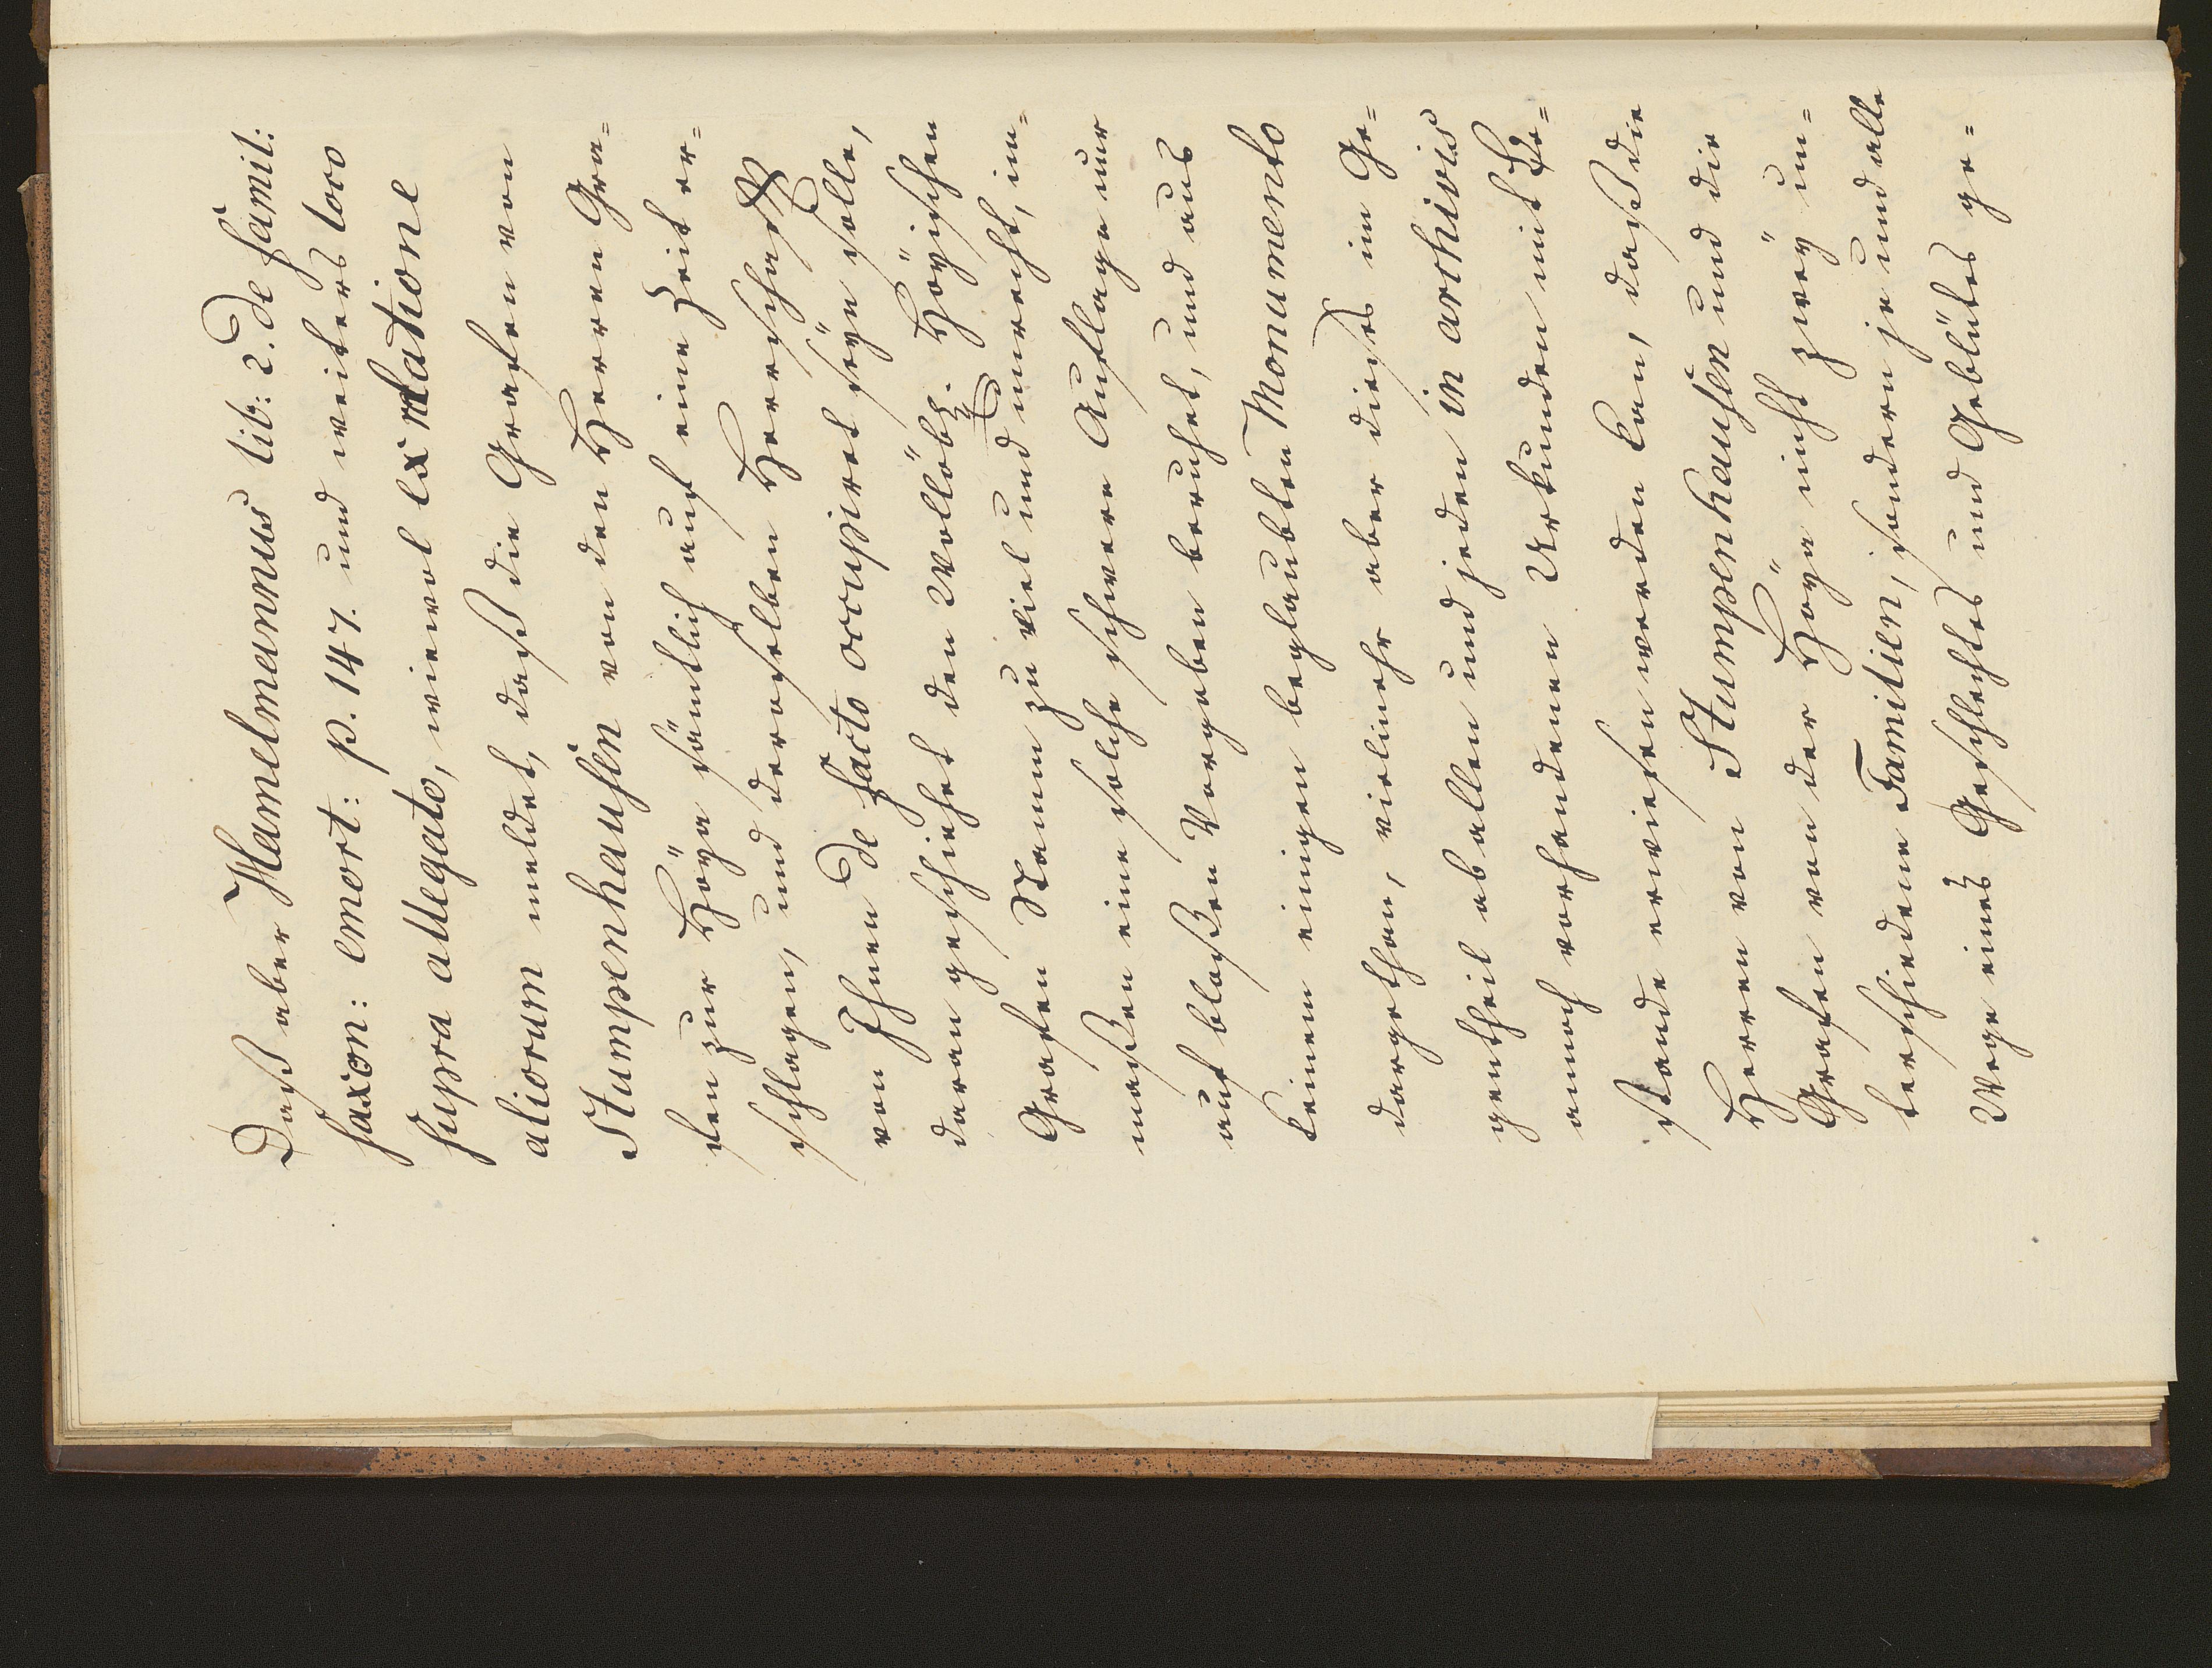 Daß aber Hamelmannus lib: 2. de famil:
saxon: emort: p. 147. und weiters loco
supra allegato, wiewol ex relatione
aliorum meldet, daß die Grafen von
Stumpenhausen von den Herren Gra=
fen zur Hoÿa sämtlich auf eine Zeit er=
schlagen, und deroselben Herrschaft
von Ihnen de facto occupiret seÿn solle,
daran geschiehet den Wollöbl. Hoÿischen
Grafen Stamm zu viel und unrecht, im=
maßen eine solche schwere Auflage nur
auf bloßen Vorgeben beruhet, und aus
keinem einigen beglaubten Monumento
dargethan, vielmehr aber dieses im Ge=
gentheil ab allen und jeden in archivis
annoch vorhandenen Urkunden mit Be=
stande erwiesen werden kan, daß die
Herren von Stumpenhausen und die
Grafen von der Hoÿa nicht zweÿ un=
terschiedene Familien, sondern je und alle
Wege eines Geschlechtes und Geblütes ge=